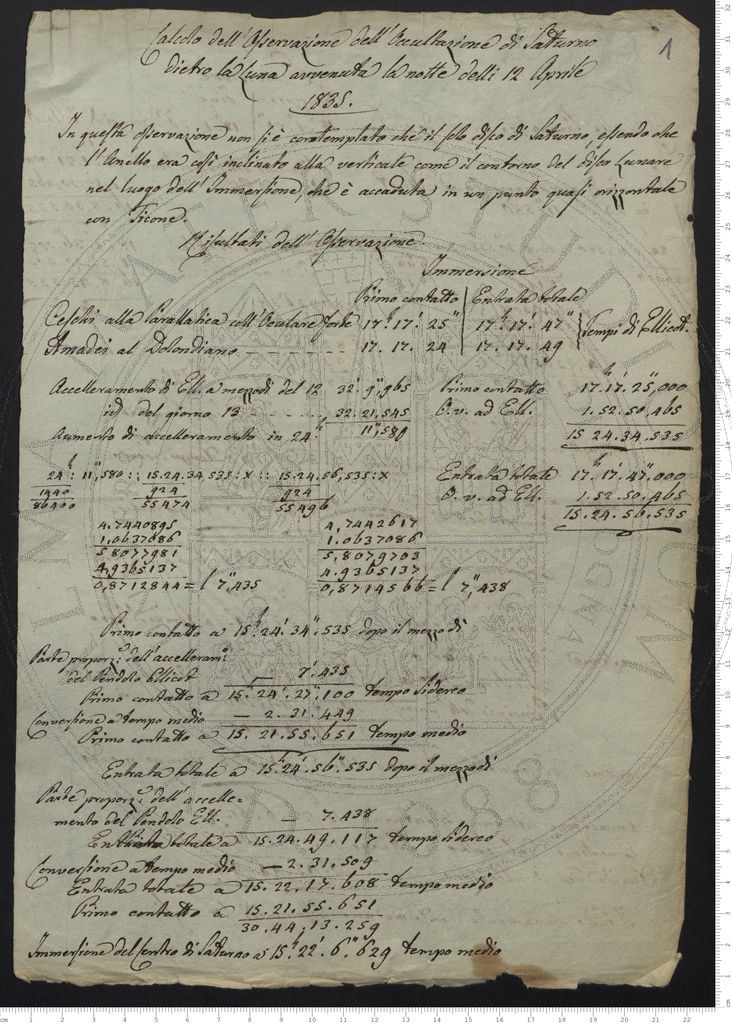 1
Calcolo dell'Osservazione dell'Occultazione di Saturno
dietro la Luna avvenuta la notte delli 12 Aprile
1835.
In questa osservazione non si è contemplato che il solo disco di Saturno, essendo che
l'Anello era così inclinato alla verticale come il contorno del disco Lunare
nel luogo dell'Immersione, che è accaduta in un punto quasi orizzontale
con Ticone.
Risultati dell'Osservazione.
Immersione
Primo contatto | Entrata totale
Ceschi alla Parallatica coll'Oculare forte 17.h 17.' 25" 17.h 17.' 47" } Tempi di Ellicot.
Amadei al Dolondiano 17. 17. 24 17. 17. 49
Accelleramento di Elli. a mezzodì del 12 32.' 9",965 Primo contatto 17.h 17.' 25",000
id. del giorno 13 32. 21,545 O. v. ad Ell. 1. 52. 50,465
Aumento di accelleramento in 24.h 11",580 15 24. 34. 535
24.h : 11",580 :: 15.24.34,535 : x :: 15.24.56,535 : x Entrata totale 17.h 17.' 47",000
1440 924 924 O. v. ad Ell. 1. 52. 50,465
86400 55474 55496 15. 24. 56. 535
4.7440895 4,7442617
1.0637086 1.0637086
5.8077981 5,8079703
4.9365137 4.9365137
0,8712844 = l 7",435 0,8714566 = l 7",438
Primo contatto a 15.h 24.' 34". 535 dopo il mezzodì
Parte proporz.e dell'acceleram.to
del Pendolo Ellicot — 7.435
Primo contatto a 15. 24. 27. 100 tempo sidereo
Conversione a tempo medio — 2. 31. 449
Primo contatto a 15. 21. 55. 651 tempo medio
Entrata totale a 15.h 24.' 56". 535 dopo il mezzodì
Parte proporz.e dell'accelle=
mento del Pendolo Ell. — 7. 438
Entrata totale a 15. 24. 49. 117 tempo sidereo
Conversione a tempo medio — 2. 31. 509
Entrata totale a 15. 22. 17. 608 tempo medio
Primo contatto a 15. 21. 55. 651
30. 44. 13. 259
Immersione del Centro di Saturno a 15.h 22.' 6." 629 tempo medio